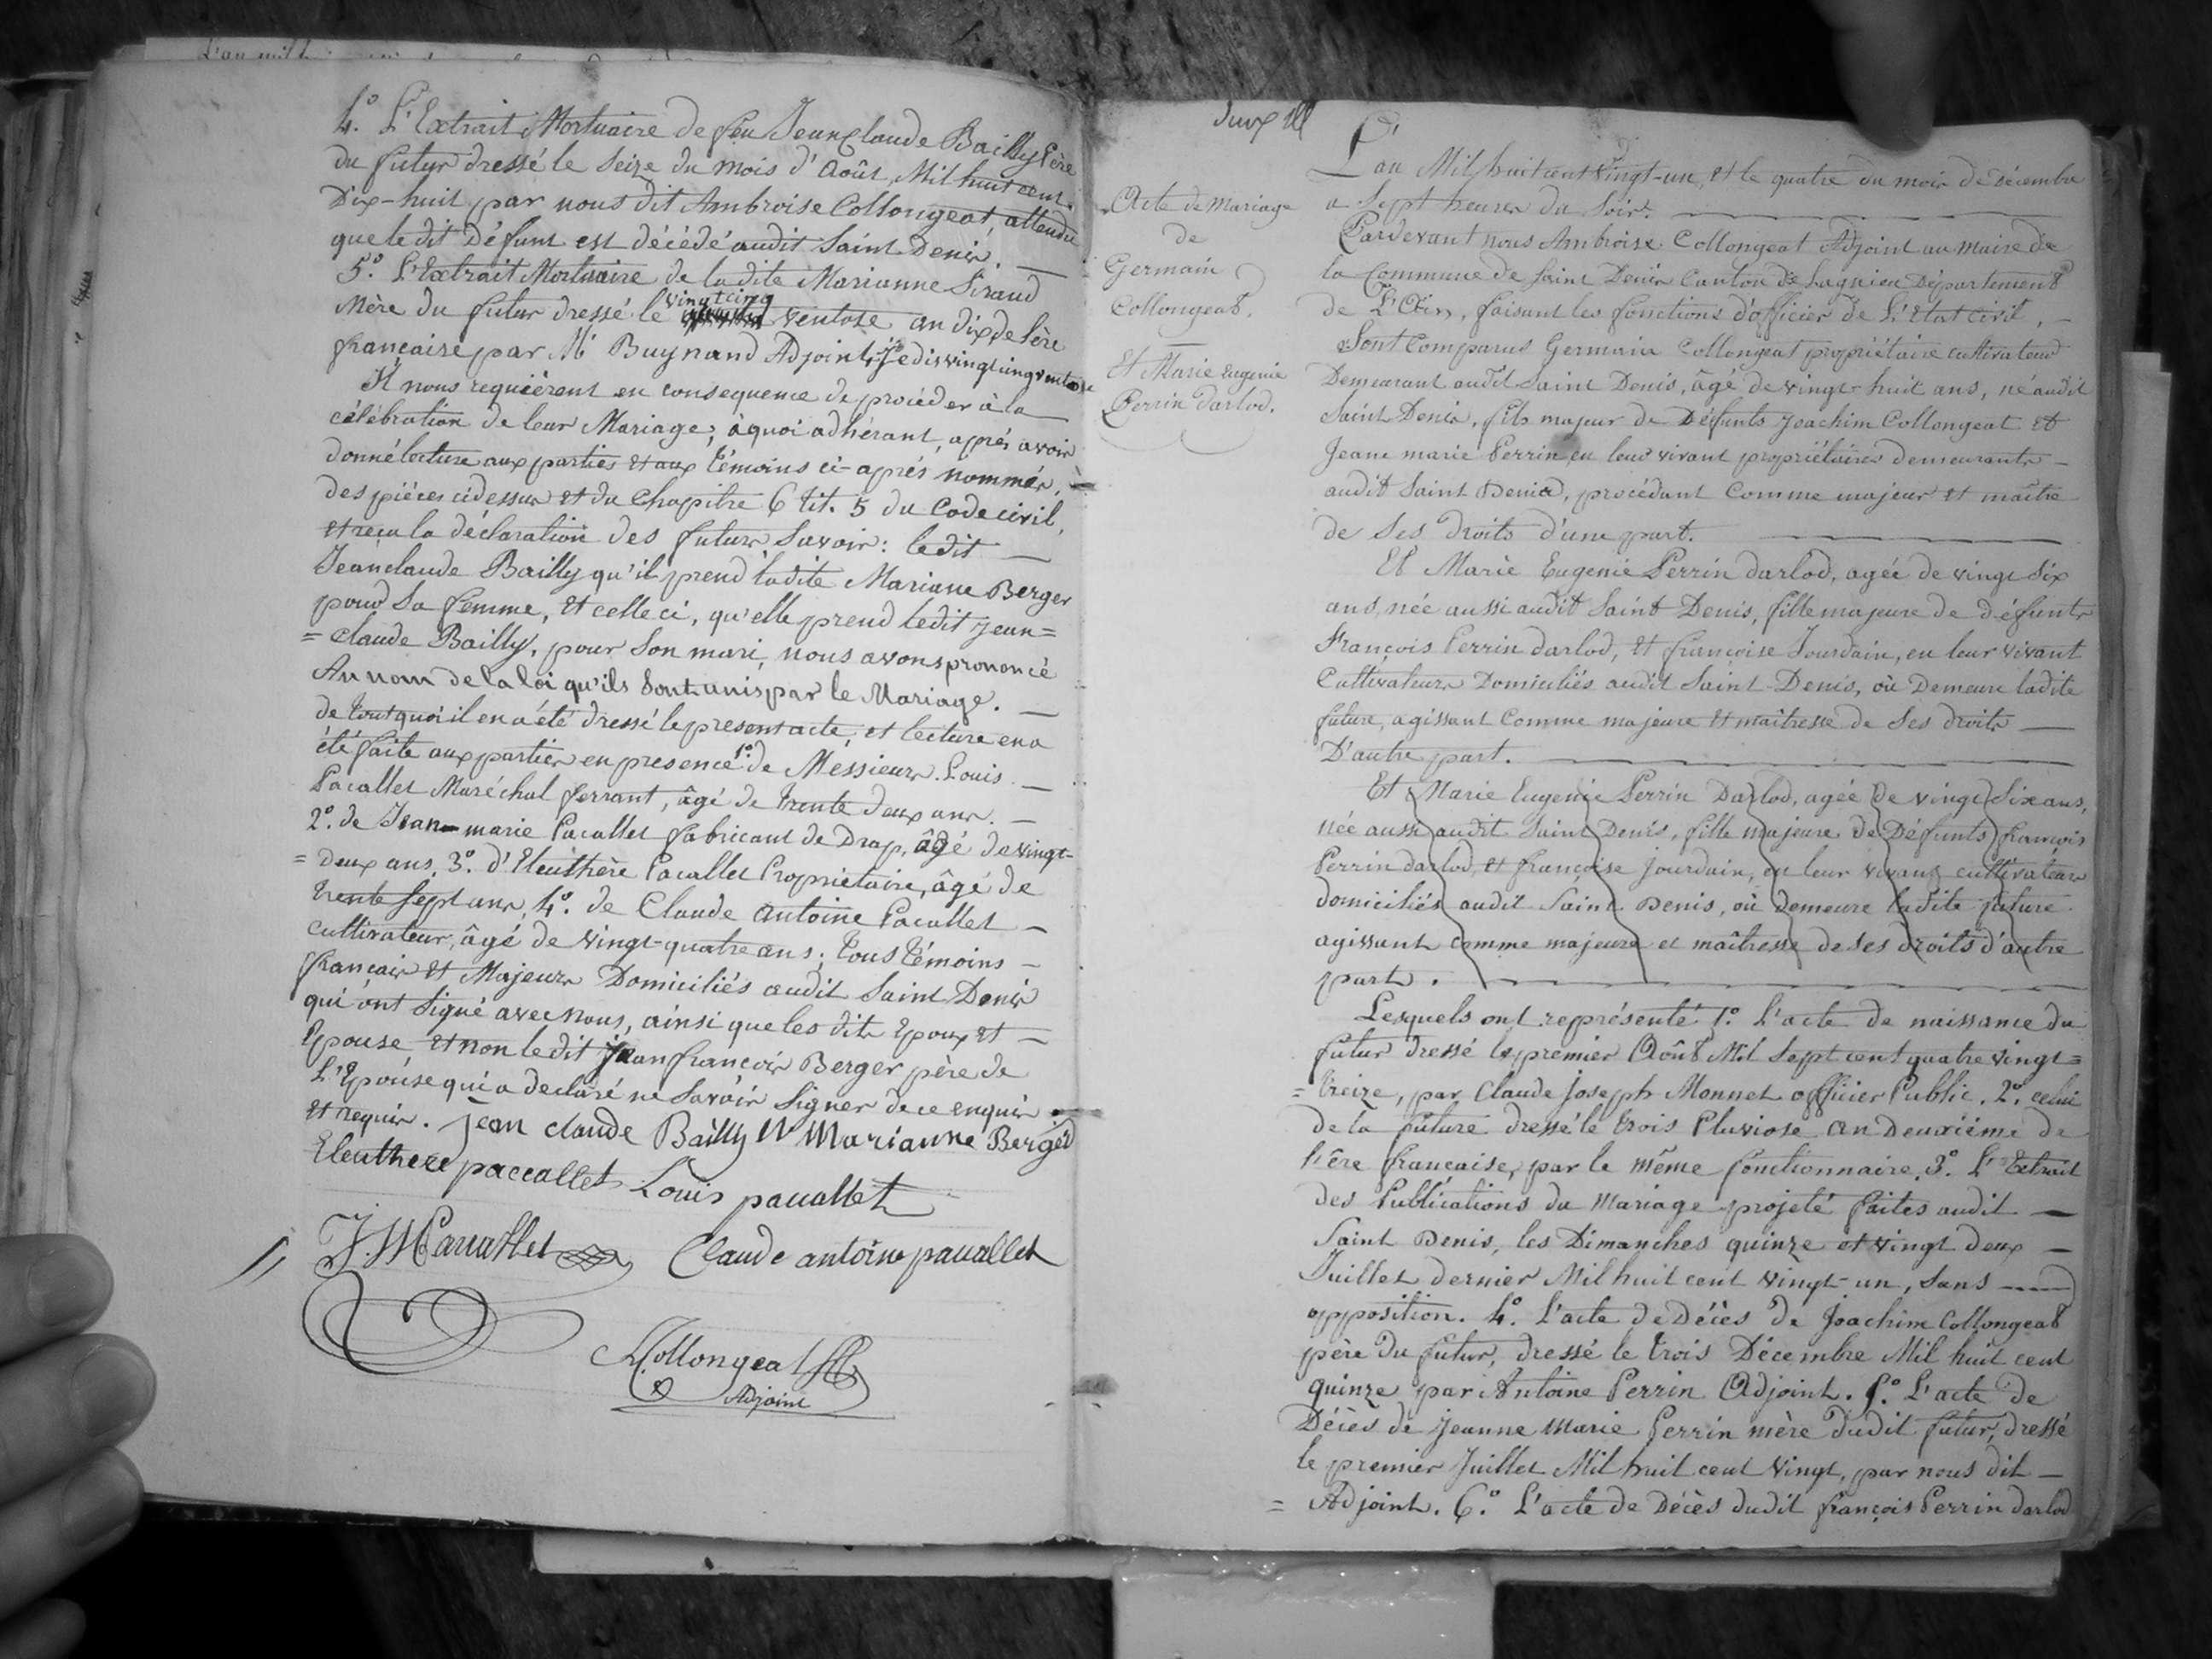 4.° L'Extrait Mortuaire de feu Jean Claude Bailly Père
du futur dressé le Seize du mois d'Août, Mil huit cent.
Dix-huit par nous dit Ambroise Collongeat, attendu
que le dit Défunt est décédé audit Saint Denis. —
5.° L'Extrait Mortuaire de ladite Marianne Siraud
Mère du futur dressé le vingt cinq ventose an dix de l'ère
française par Mr Buynand Adjoint, je dis vingt cinq ventose
Il nous requièrent en consequence de procéder à la
célébration de leur Mariage; à quoi adhérant, après avoir
donné lecture aux parties et aux témoins ci-après nommés, —
des pièces cidessus et du Chapitre 6 tit. 5 du Code civil,
et reçu la déclaration des futurs Savoir: ledit —
Jeanclaude Bailly qu'il prend ladite Mariane Berger
pour Sa femme, Et celle ci, qu'elle prend ledit Jean=
= Claude Bailly, pour Son mari, nous avons prononcé
Au nom de la loi qu'ils Sont unis par le Mariage. —
de tout quoi il en a été dressé le présent acte, et lecture en a
été faite aux parties en presence 1°. de Messieurs Louis —
Pacallet Maréchal ferrant, âgé de trente deux ans. —
2°. de Jean-marie Pacallet fabricant de Drap, âgé de vingt-
= deux ans, 3°. d'Eleuthère Pacallet Propriétaire, âgé de
trente Sept ans, 4°. de Claude Antoine Pacallet —
cultivateur, âgé de vingt-quatre ans; tous témoins —
français et Majeurs Domiciliés audit Saint Denis
qui ont Signé avec nous, ainsi que les dits Epoux et —
Epouse et non ledit Jean françois Berger père de
L'Epouse qui a declaré ne Savoir Signer de ce enquis
et requis. Jean claude Bailly Marianne Berger
Eleuthere paccallet Louis pacallet
J. M Pacallet Claude antoine pacallet
Collongeat
Adjoint
Acte de Mariage
de
Germain
Collongeat.
Et Marie Eugenie
Perrin darlod.
L'an Mil huit cent Vingt-un, et le quatre du mois de Décembre
a Sept heures du Soir. —
Pardevant nous Ambroise Collongeat Adjoint au maire de
la Commune de Saint Denis Canton de Lagnieu Département
de L'Ain, faisant les fonctions d'officier de L'Etat Civil, —
Sont Comparus Germain Collongeat propriétaire cultivateur
Demeurant audit Saint Denis, âgé de vingt-huit ans, né audit
Saint Denis, fils majeur de Défunts Joachim Collongeat et
Jeane marie Perrin, en leur vivant propriétaires demeurants —
audit Saint Denis, procédant Comme majeur et maître
de Ses droits d'une part. —
Et Marie Eugenie Perrin darlod, agée de vingt Six
ans, née aussi audit Saint Denis, fille majeure de défunts
François Perrin darlod, et françoise Jourdain, en leur vivant
Cultivateurs Domiciliés audit Saint Denis, où Demeure ladite
future, agissant Comme majeure et maîtresse de Ses droits —
D'autre part. —
Et Marie Eugenie Perrin Darlod, agée de vingt Six ans,
née aussi audit Saint Denis, fille majeure de Défunts françois
Perrin darlod, et françoise Jourdain, en leur vivans cultivateurs
domiciliés audit Saint Denis, où Demeure ladite future
agissant comme majeure et maîtresse de ses droits d'autre
part. —
Lesquels ont représenté 1.° L'acte de naissance du
futur dressé le premier Août Mil Sept cent quatre vingt =
= treize, par Claude Joseph Monnet officier Public. 2°. celui
de la future dressé le trois Pluviose an Deuxième de
l'ère française, par le même fonctionnaire. 3°. L'Extrait
des Publications du Mariage projeté faites audit —
Saint Denis, les Dimanches quinze et vingt deux —
Juillet dernier Mil huit cent vingt-un, Sans —
opposition. 4.° L'acte de Décès de Joachim Collongeat
père du futur, dressé le trois Décembre Mil huit cent
quinze par Antoine Perrin Adjoint. 5.° L'acte de
Décès de Jeanne Marie Perrin mère dudit futur, dressé
le premier Juillet Mil huit cent Vingt, par nous dit —
= Adjoint. 6.° L'acte de Décès dudit françois Perrin darlod